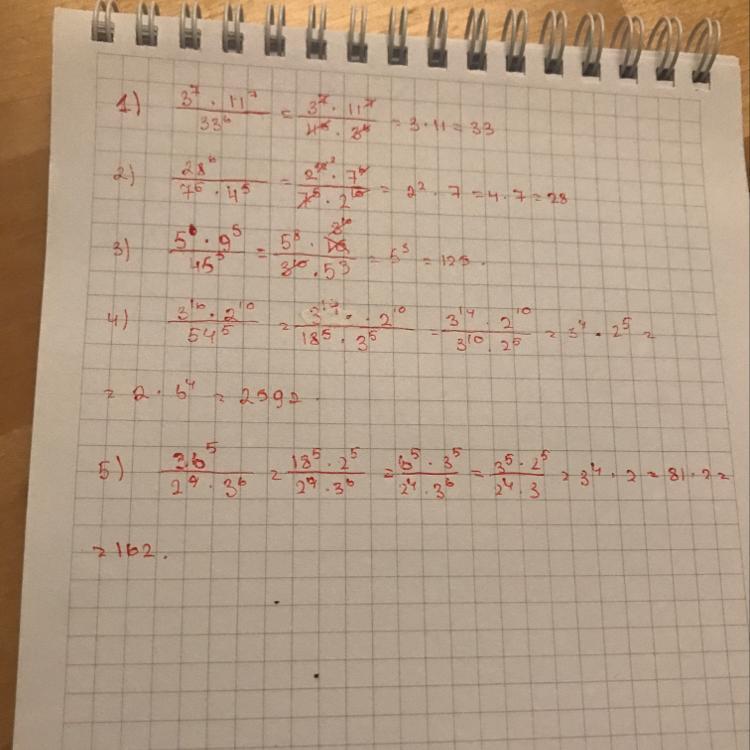 1) 3^7 · 11^7 / 33^6 = 3^7 · 11^7 / 11^6 · 3^6 = 3 · 11 = 33
2) 28^6 / 7^5 · 4^5 = 2^12 · 7^6 / 7^5 · 2^10 = 2^2 · 7 = 4 · 7 = 28
3) 5^8 · 9^5 / 45^5 = 5^8 · 3^10 / 3^10 · 5^3 = 5^3 = 125.
4) 3^16 · 2^10 / 54^5 = 3^17 · 2^10 / 18^5 · 3^5 = 3^14 · 2^10 / 3^10 · 2^5 = 3^4 · 2^5 =
= 2 · 6^4 = 2592.
5) 36^5 / 2^4 · 3^6 = 18^5 · 2^5 / 2^4 · 3^6 = 6^5 · 3^5 / 2^4 · 3^6 = 3^5 · 2^5 / 2^4 · 3 = 3^4 · 2 = 81 · 2 =
= 162.